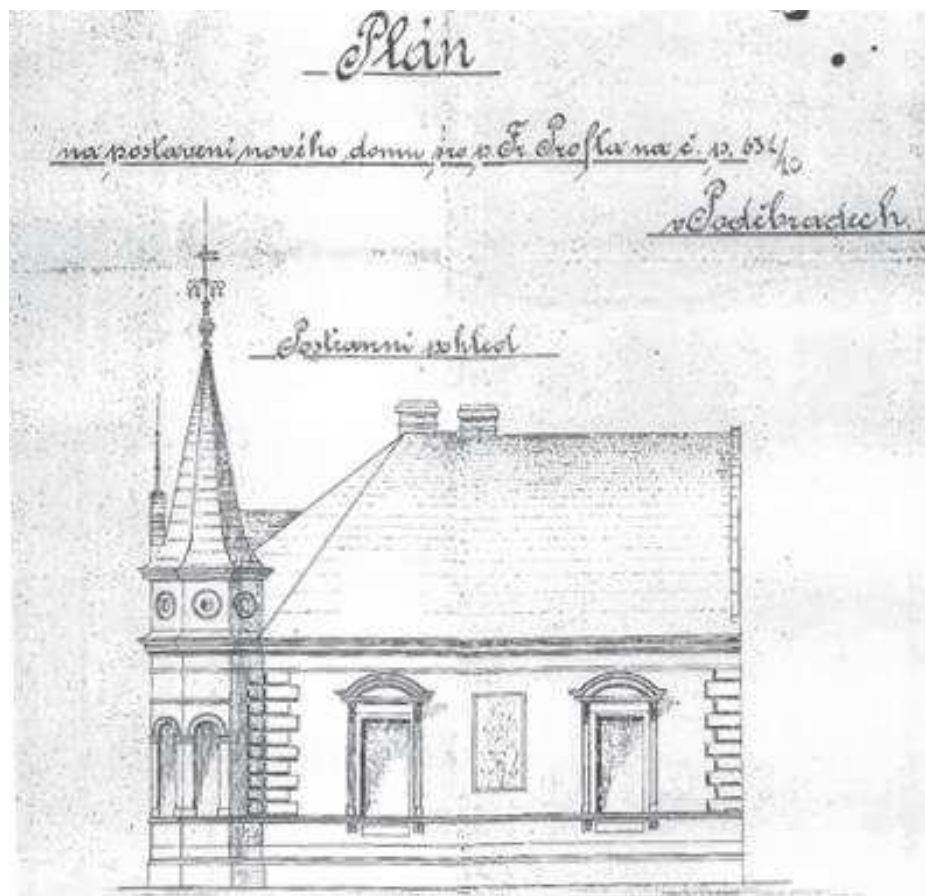 Plán
na postavení nového domu pro p. Fr. Profta na č. p. 632/20
v Poděbradech.
Postranní pohled